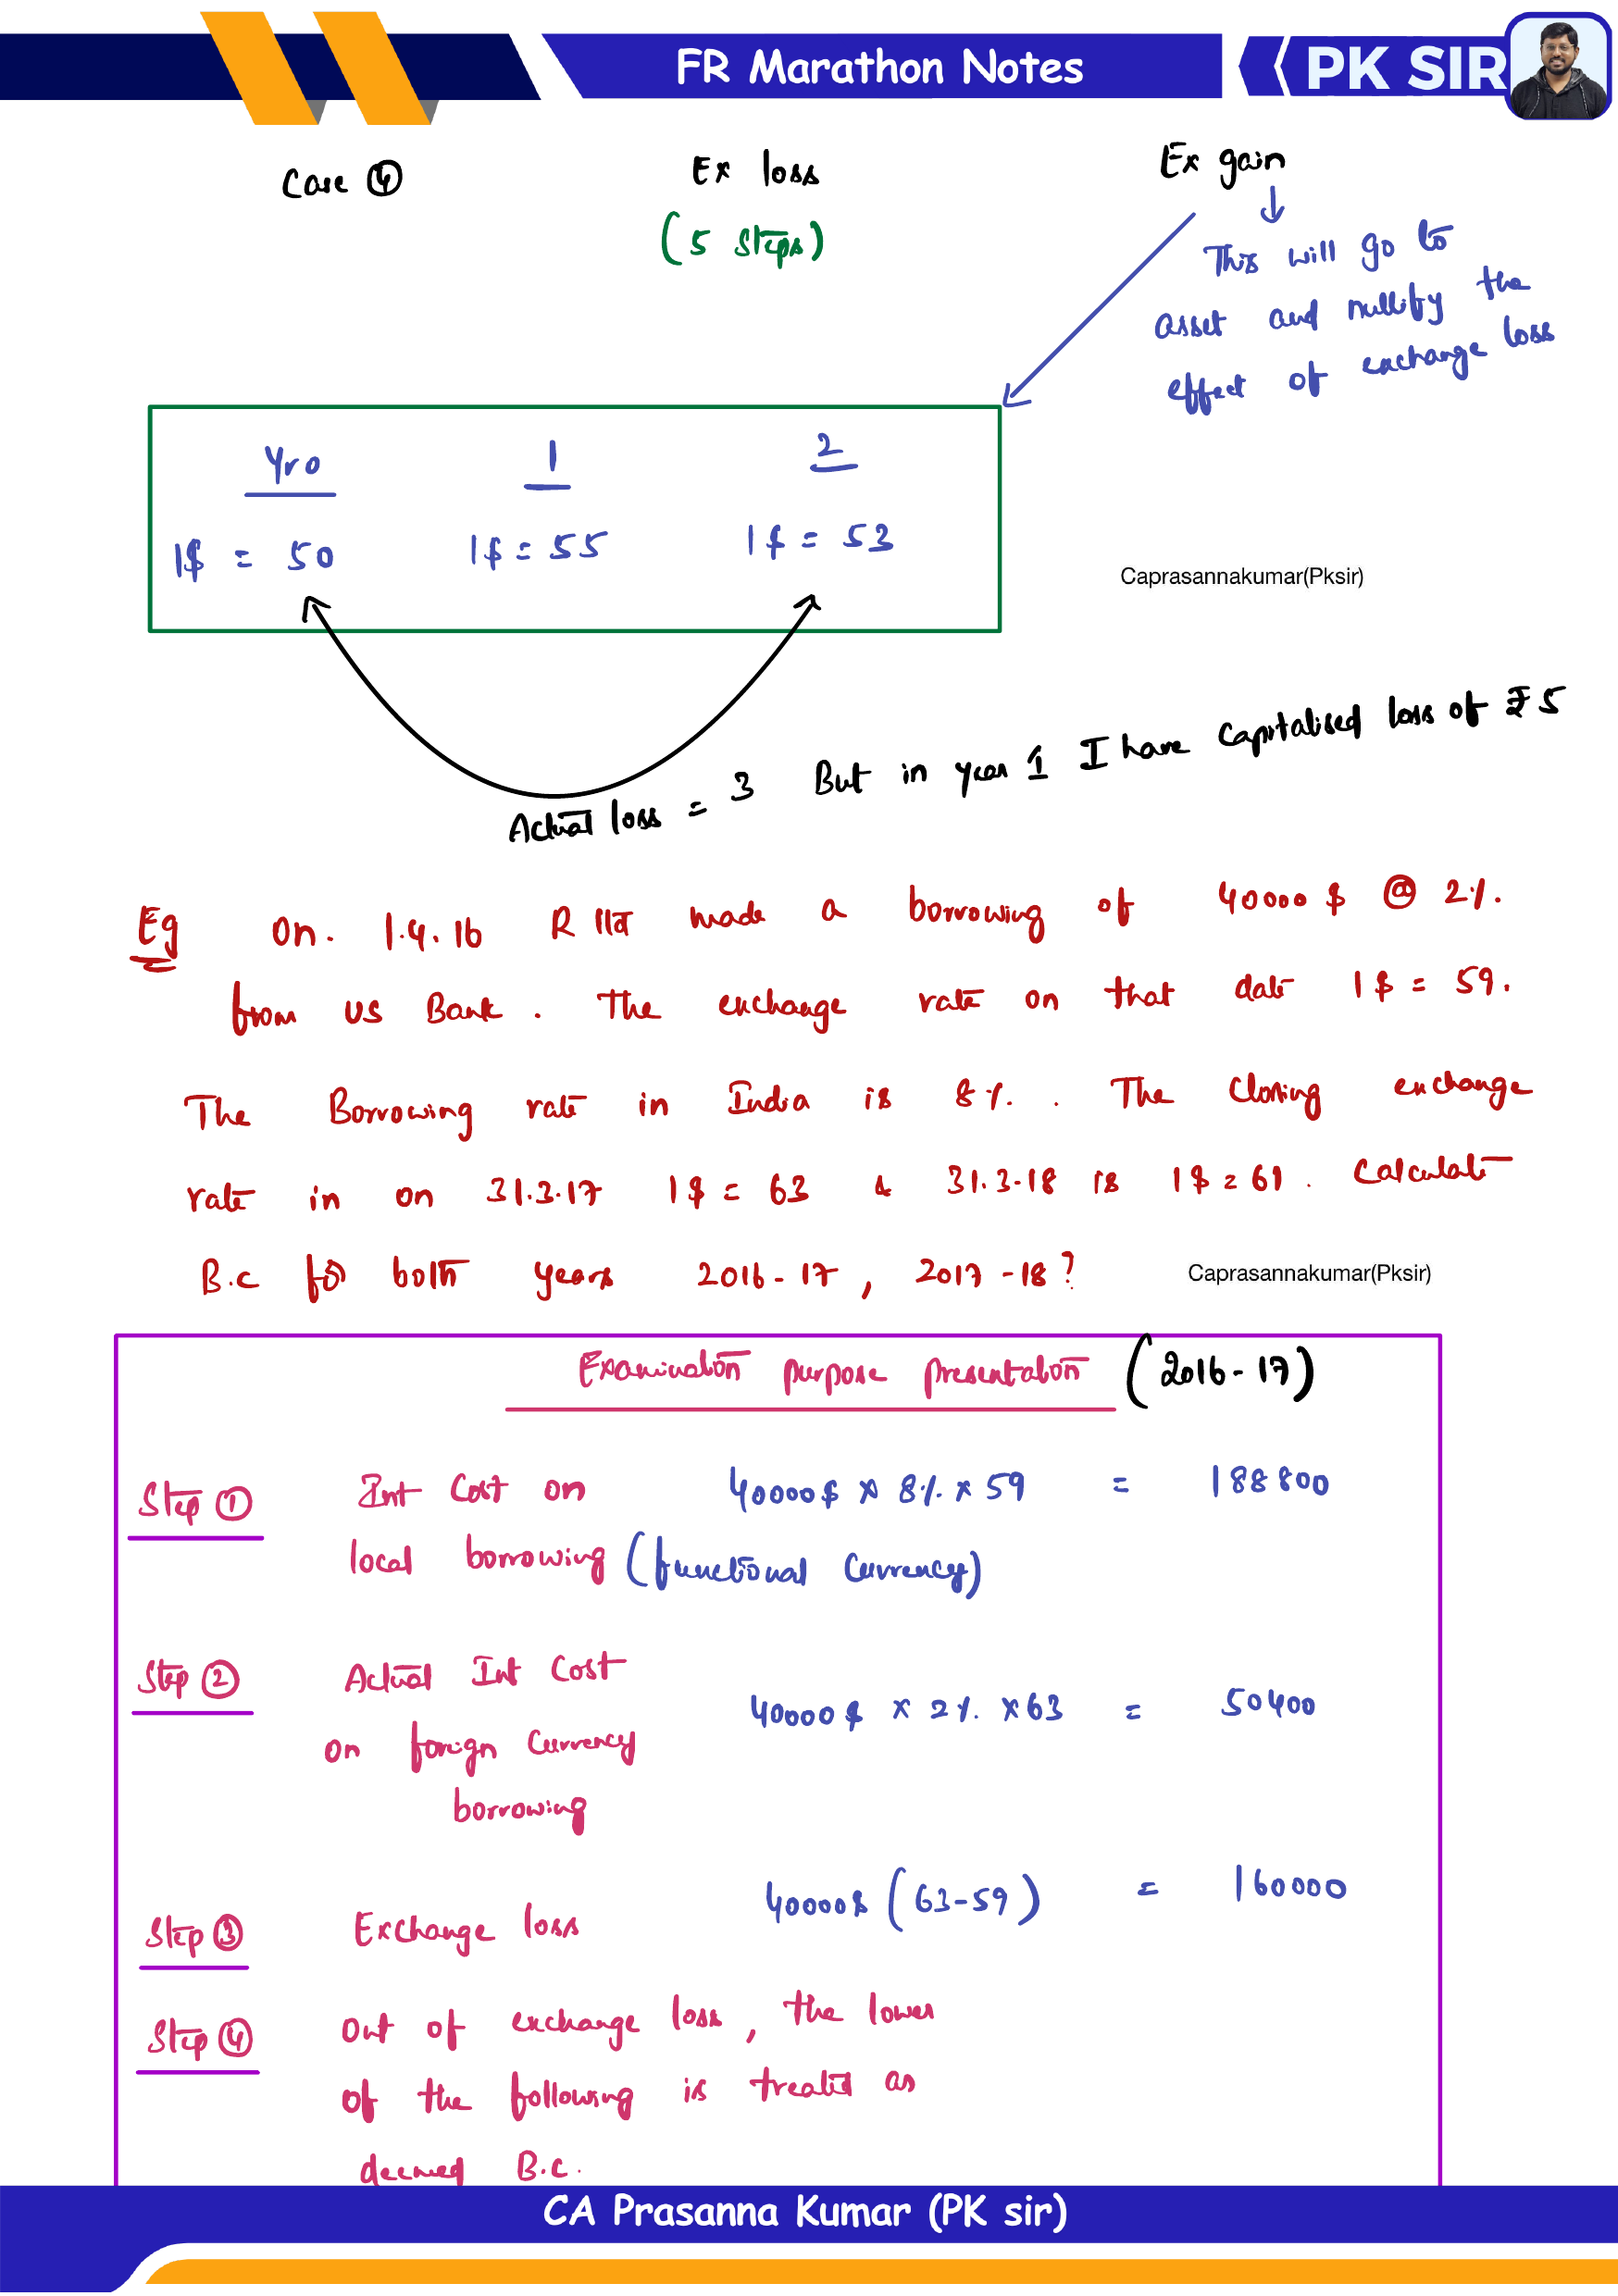 FR Marathon Notes
PK SIR
Case ④
Ex loss
(5 Steps)
Ex gain
This will go to
asset and nullify the
effect of exchange loss
Yr 0 1 2
1$ = 50 1$ = 55 1$ = 53
Caprasannakumar(Pksir)
Actual loss = 3 But in year 1 I have capitalised loss of ₹5
Eg On. 1.4.16 R ltd made a borrowing of 40000 $ @ 2%.
from US Bank. The exchange rate on that date 1$ = 59.
The Borrowing rate in India is 8%. The Closing exchange
rate in on 31.3.17 1$ = 63 & 31.3.18 is 1$ = 61. Calculate
B.C for both years 2016-17, 2017-18?
Caprasannakumar(Pksir)
Examination purpose presentation (2016-17)
Step ① Int Cost on 40000$ x 8% x 59 = 188800
local borrowing (functional Currency)
Step ② Actual Int Cost
40000$ x 2% x 63 = 50400
on foreign Currency
borrowing
Step ③ Exchange loss 40000$ (63-59) = 160000
Step ④ Out of exchange loss, the lower
of the following is treated as
deemed B.C.
CA Prasanna Kumar (PK sir)